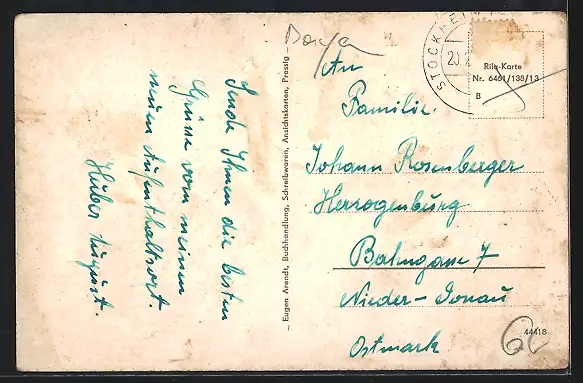 Sende Ihnen die besten
Grüsse von meinem
neuen Aufenthaltsort.
Huber August.
– Eugen Arendt, Buchhandlung, Schreibwaren, Ansichtskarten, Pressig –
STOCKHEIM
20.
Rila-Karte
Nr. 6461/138/13
B
An
Familie
Johann Rosenberger
Herzogenburg
Bahngasse 7
Nieder-Donau
Ostmark
44418